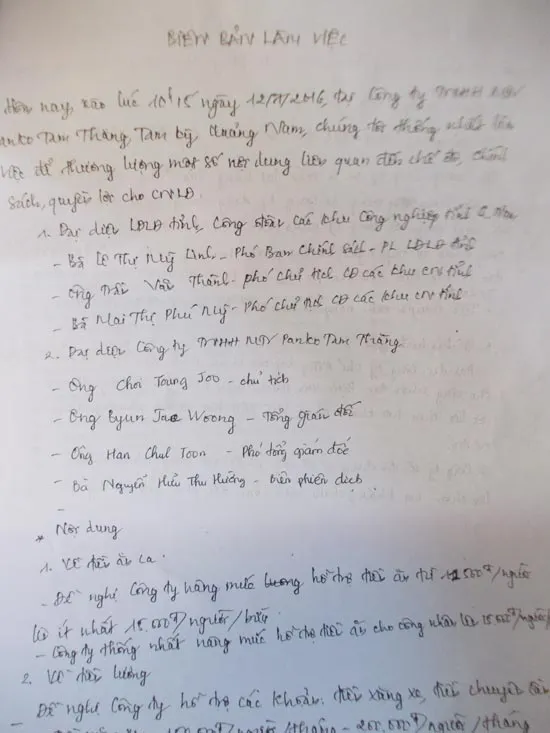 BIÊN BẢN LÀM VIỆC
Hôm nay, vào lúc 10h15 ngày 12/7/2016, tại Công ty TNHH MTV
Panko Tam Thăng, Tam kỳ, Quảng Nam, chúng tôi thống nhất làm
việc để thương lượng một số nội dung liên quan đến chế độ, chính
sách, quyền lợi cho CNLĐ.
1. Đại diện LĐLĐ tỉnh, Công đoàn các khu Công nghiệp tỉnh Q Nam
- Bà Lê Thị Mỹ Linh - Phó Ban Chính sách - PL LĐLĐ tỉnh
- Ông Trần Văn Thành - phó chủ tịch CĐ các khu CN tỉnh
- Bà Mai Thị Phú Mỹ - Phó chủ tịch CĐ các khu CN tỉnh
2. Đại diện Công ty TNHH MTV Panko Tam Thăng
- Ông Choi Young Joo - chủ tịch
- Ông Byun Jae Woong - Tổng giám đốc
- Ông Han Chul Joon - Phó tổng giám đốc
- Bà Nguyễn Hiếu Thu Hường - Biên phiên dịch
-
* Nội dung
1. Về tiền ăn ca.
- Đề nghị Công ty nâng mức hỗ trợ tiền ăn từ 12.500đ/người
là ít nhất 15.000đ/người/bữa.
- Công ty thống nhất nâng mức hỗ trợ tiền ăn cho công nhân là 15.000đ/người/
2. Về tiền lương
- Đề nghị Công ty hỗ trợ các khoản: tiền xăng xe, tiền chuyên cần
100.000đ/người/tháng - 200.000đ/người/tháng